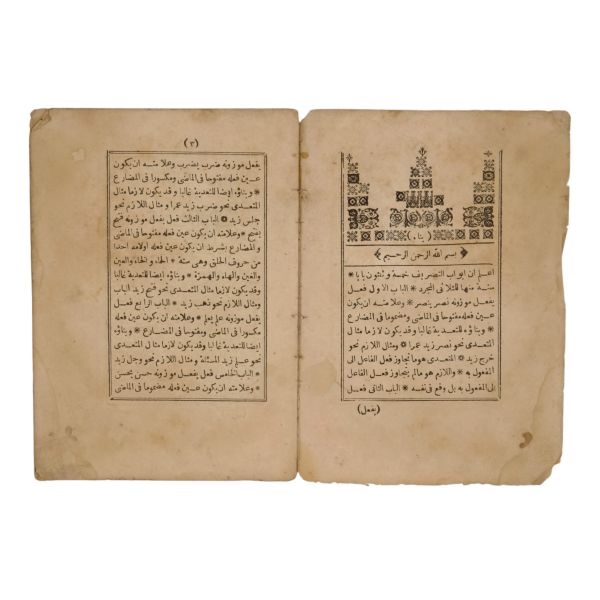 ﴿ بناء ﴾
﴿ بسم الله الرحمن الرحيم ﴾
اعلم ان ابواب التصريف خمسة وثلثون بابا *
ستة منها للثلاثى المجرد * الباب الاول فعل
يفعل موزونه نصر ينصر * وعلامته ان يكون
عين فعله مفتوحا فى الماضى ومضموما فى المضارع
* وبناؤه للتعدية غالبا وقد يكون لازما مثال
المتعدى نحو نصر زيد عمرا * ومثال اللازم نحو
خرج زيد * المتعدى هو ما تجاوز فعل الفاعل الى
المفعول به * واللازم هو مالم يتجاوز فعل الفاعل
الى المفعول به بل وقع فى نفسه * الباب الثانى فعل
(يفعل)
(٣)
يفعل موزونه ضرب يضرب وعلامته ان يكون
عين فعله مفتوحا فى الماضى ومكسورا فى المضارع
* وبناؤه ايضا للتعدية غالبا وقد يكون لازما مثال
المتعدى نحو ضرب زيد عمرا ومثال اللازم نحو
جلس زيد * الباب الثالث فعل يفعل موزونه فتح
يفتح * وعلامته ان يكون عين فعله مفتوحا فى الماضى
والمضارع بشرط ان يكون عين فعله اولامه احدا
من حروف الحلق وهى ستة * الحاء والخاء والعين
والغين والهاء والهمزة * وبناؤه ايضا للتعدية غالبا
وقد يكون لازما مثال المتعدى نحو فتح زيد الباب
ومثال اللازم نحو ذهب زيد * الباب الرابع فعل
يفعل موزونه علم يعلم * وعلامته ان يكون عين فعله
مكسورا فى الماضى ومفتوحا فى المضارع * وبناؤه
ايضا للتعدية غالبا وقد يكون لازما مثال المتعدى
نحو علم زيد المسئلة ومثال اللازم نحو وجل زيد
* الباب الخامس فعل يفعل موزونه حسن يحسن
* وعلامته ان يكون عين فعله مضموما فى الماضى